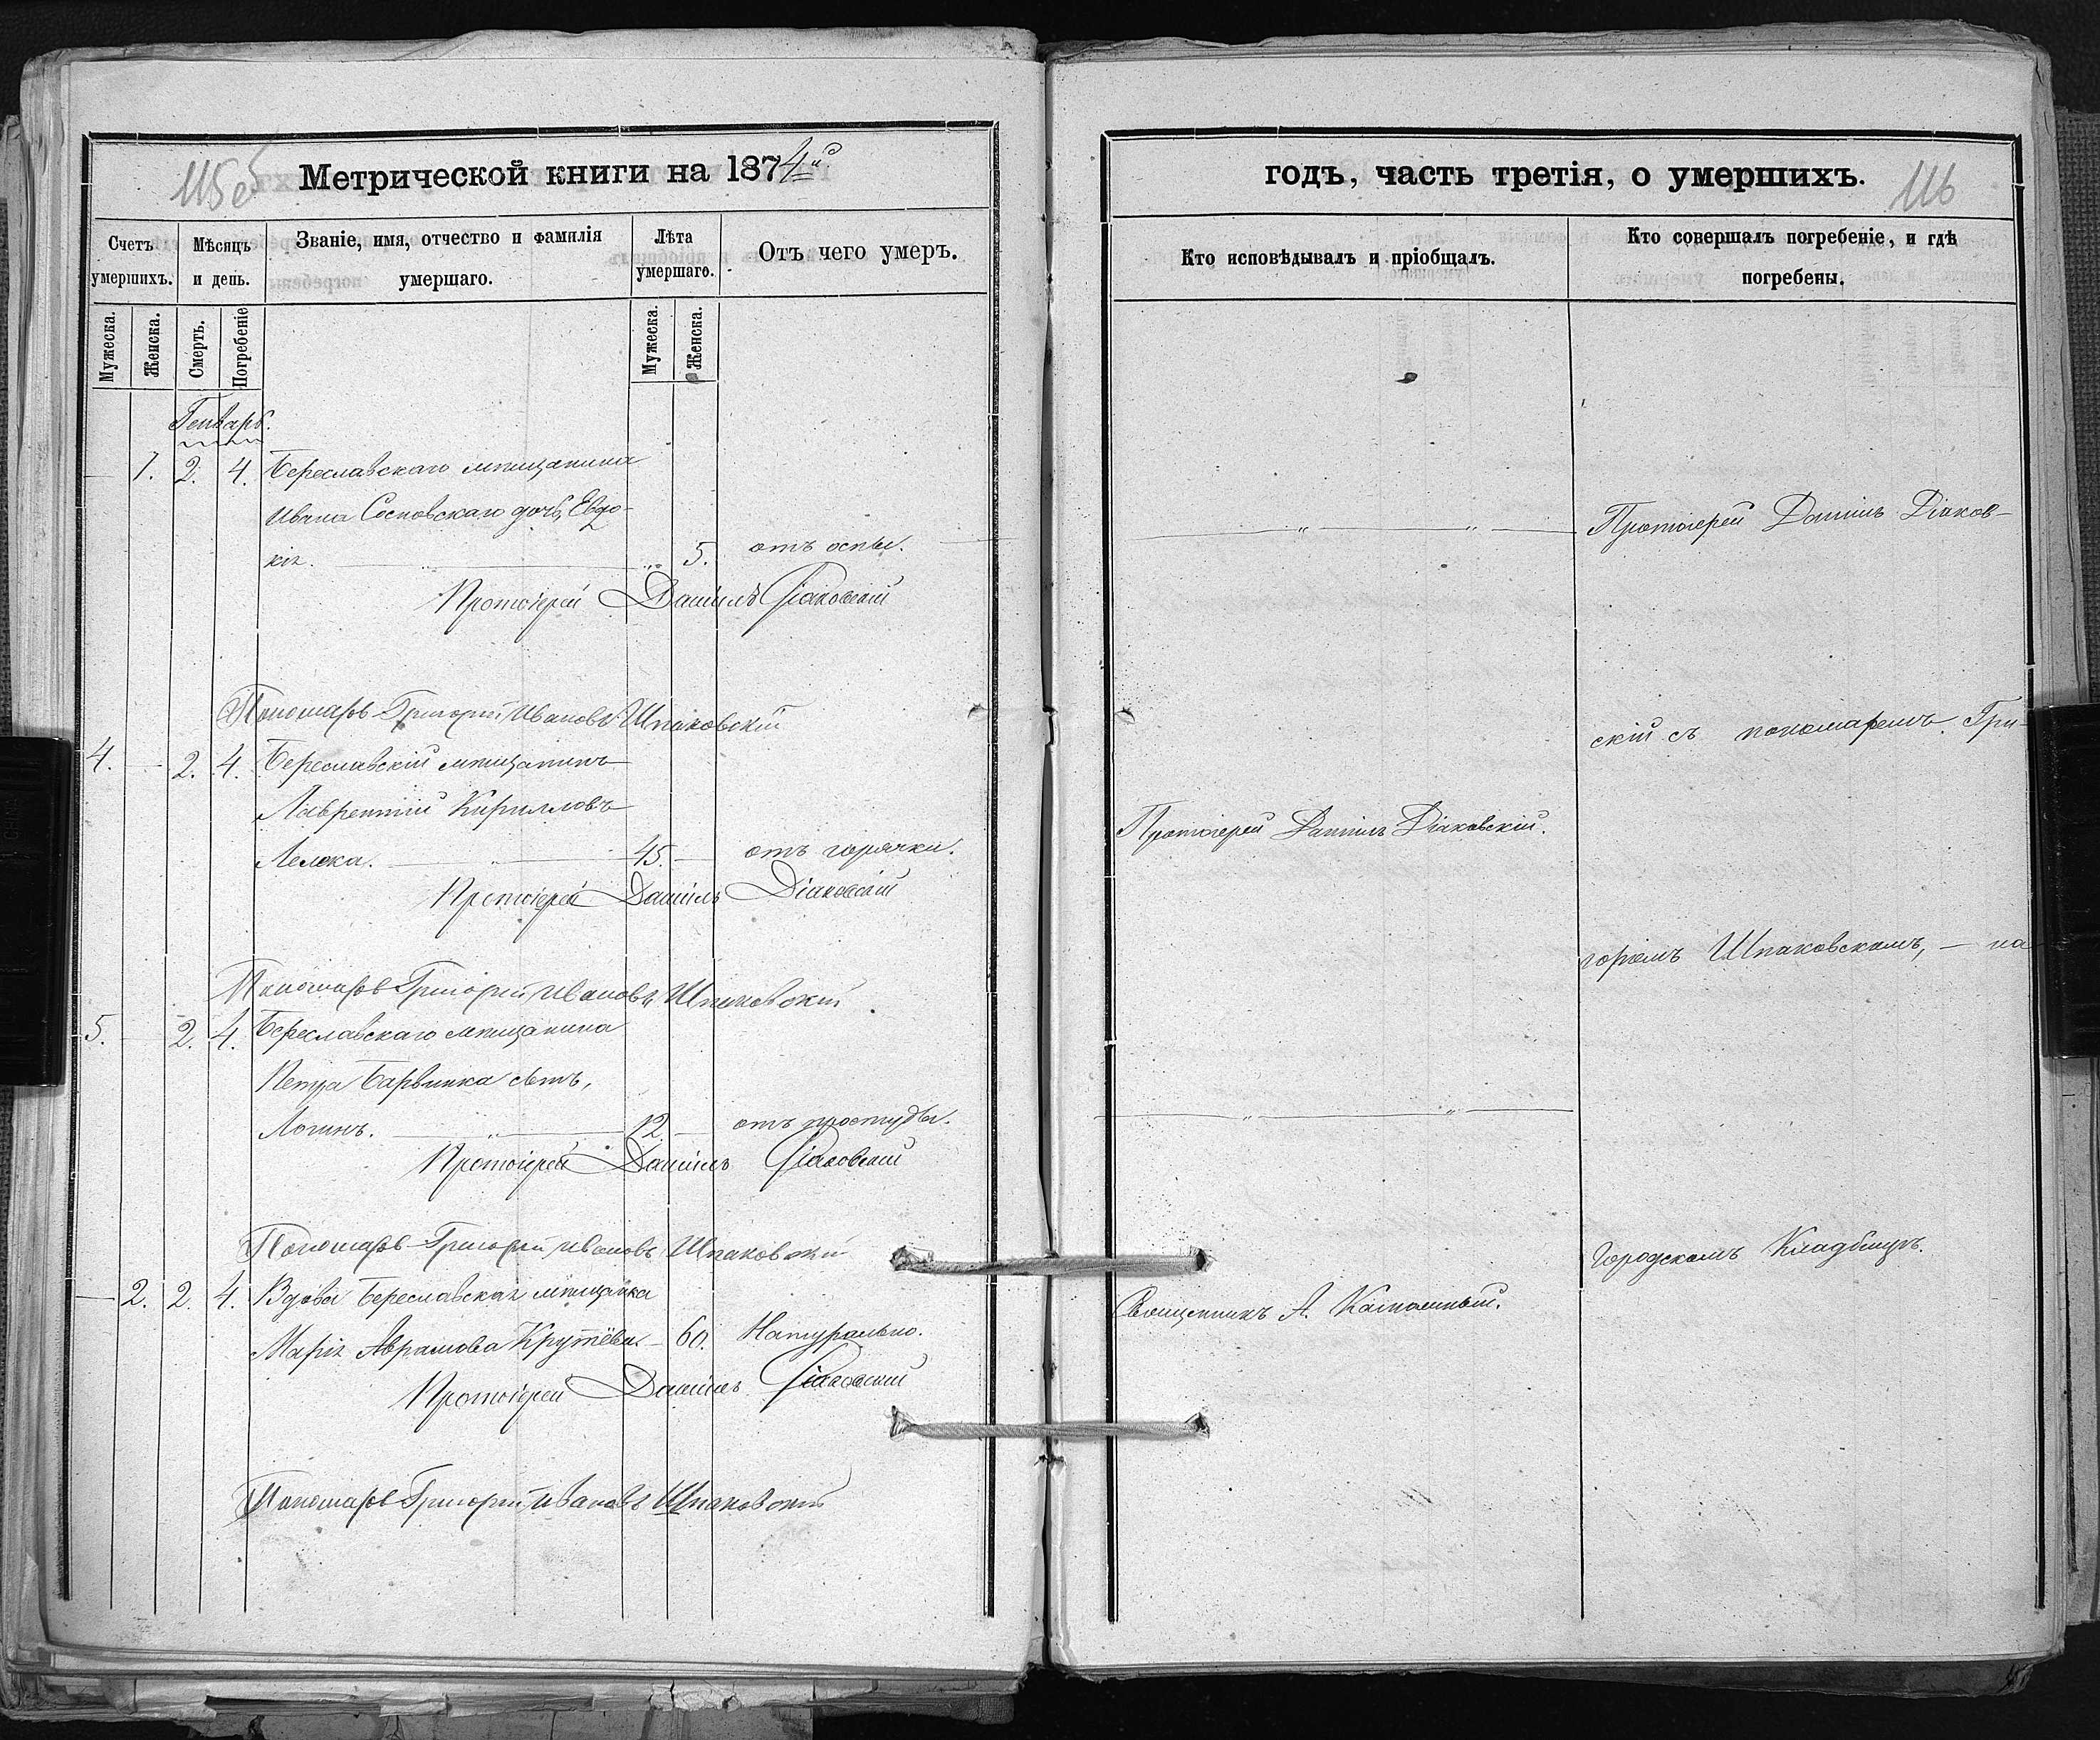 115об
Метрической книги на 1874й
Счетъ умершихъ.
Мѣсяцъ и день.
Званіе, имя, отчество и фамилія умершаго.
Лѣта умершаго.
Отъ чего умеръ.
Мужеска.
Женска.
Смерть.
Погребеніе
Мужеска.
Женска.
Генварь.
1. 2. 4. Береславскаго мѣщанина
Ивана Сосновскаго дочь, Евдо-
кія. 5. отъ оспы.
Протоіерей Даніилъ Діаковскій
Пономарь Григорій Ивановъ Шпаковскій
4. 2. 4. Береславскій мѣщанинъ
Лаврентій Кирилловъ
Лелека. 45. отъ горячки.
Протоіерей Даніилъ Діаковскій
Пономарь Григорій Ивановъ Шпаковскій
5. 2. 4. Береславскаго мѣщанина
Петра Барвинка сынъ,
Логинъ. 12. отъ простуды.
Протоіерей Даніилъ Діаковскій
Пономарь Григорій Ивановъ Шпаковскій
2. 2. 4. Вдова Береславская мѣщанка
Марія Аврамова 60. Натурально.
Протоіерей Даніилъ Діаковскій
Пономарь Григорій Ивановъ Шпаковскій
годъ, часть третія, о умершихъ.
116
Кто исповѣдывалъ и пріобщалъ.
Кто совершалъ погребеніе, и гдѣ погребены.
Протоіерей Даніилъ Діаков-
скій съ пономаремъ Гри-
Протоіерей Даніилъ Діаковскій.
горіемъ Шпаковскимъ, — на
Городскомъ Кладбищѣ.
Священникъ А.